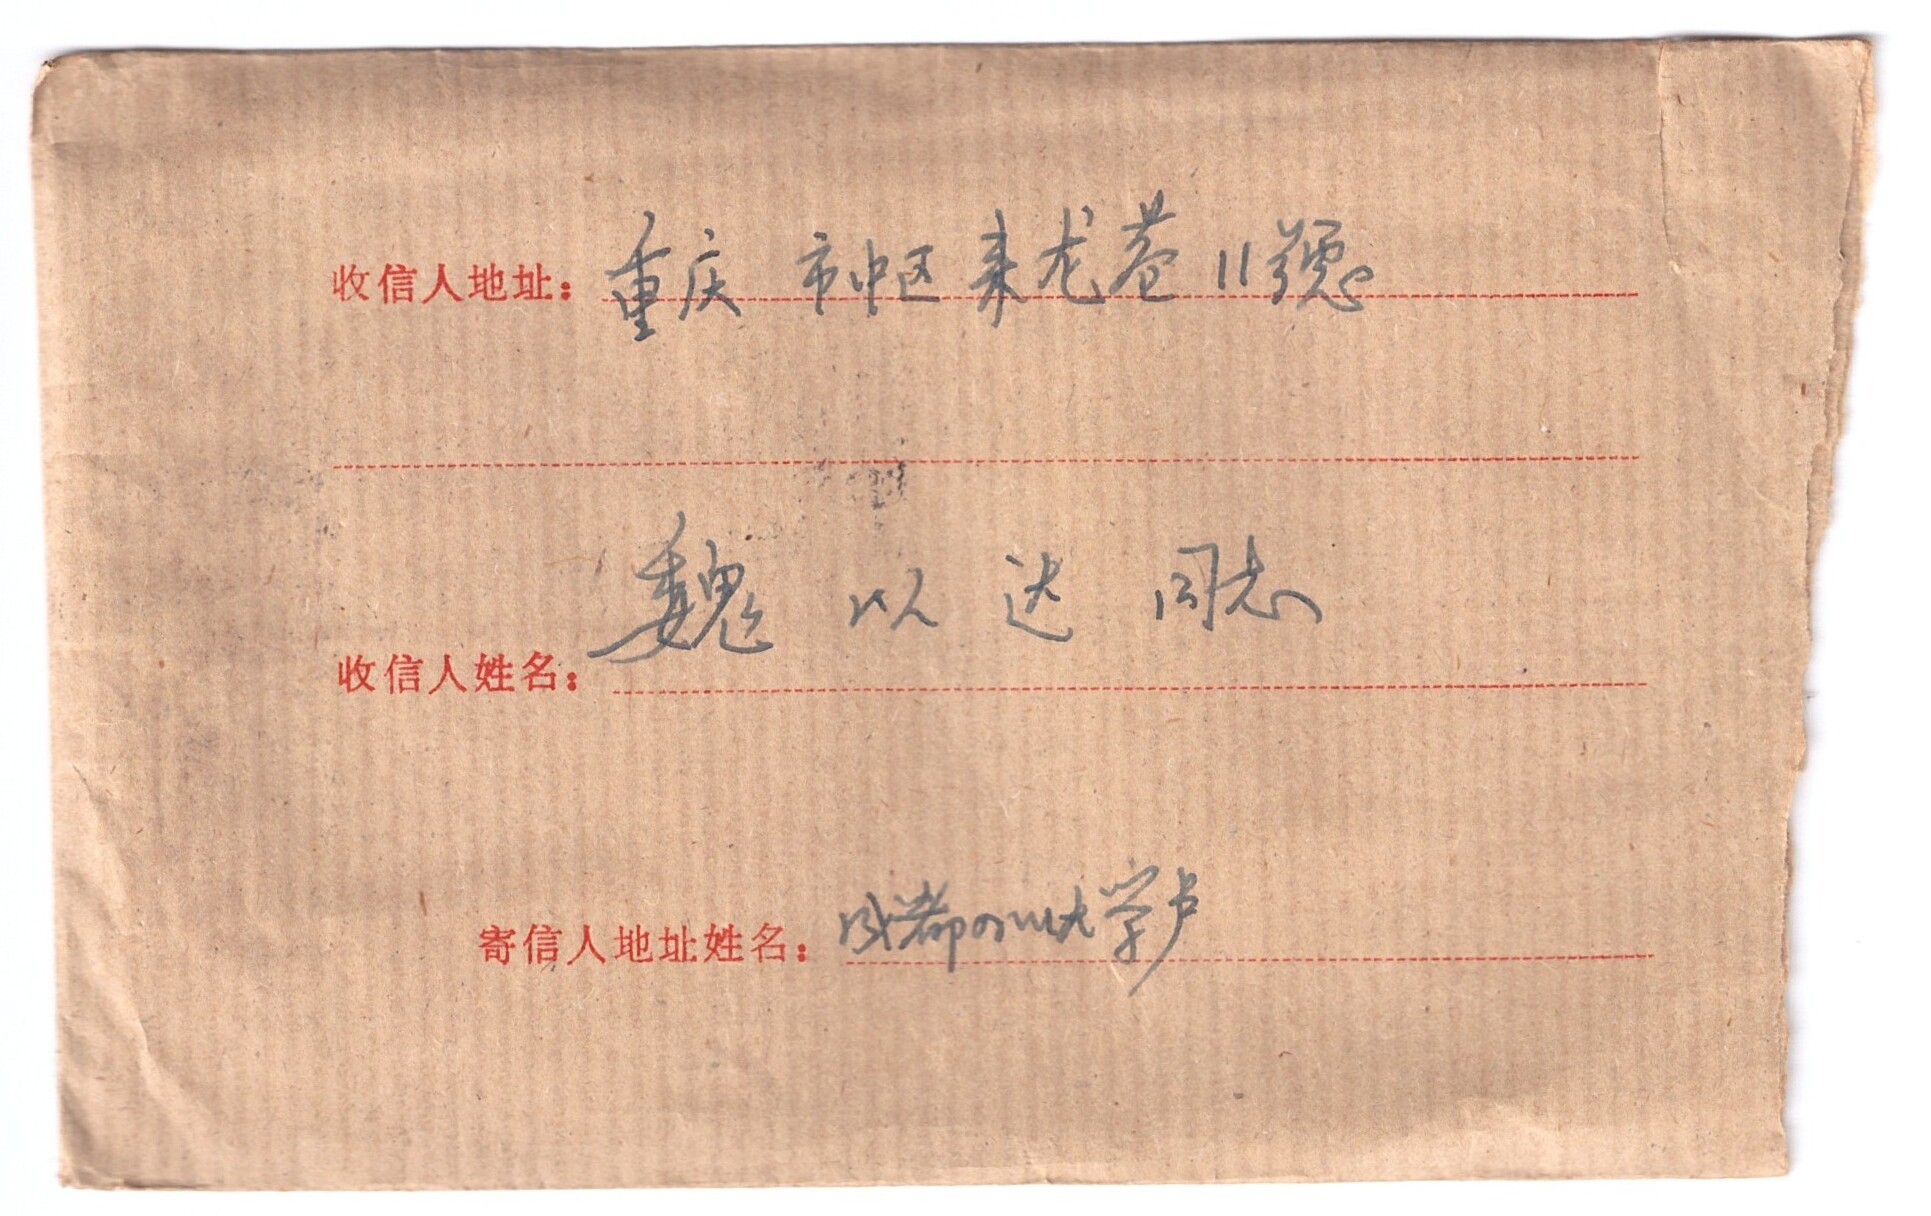 收信人地址：重庆 市中区来龙巷11号
收信人姓名：魏以达同志
寄信人地址姓名：成都四川大学卢